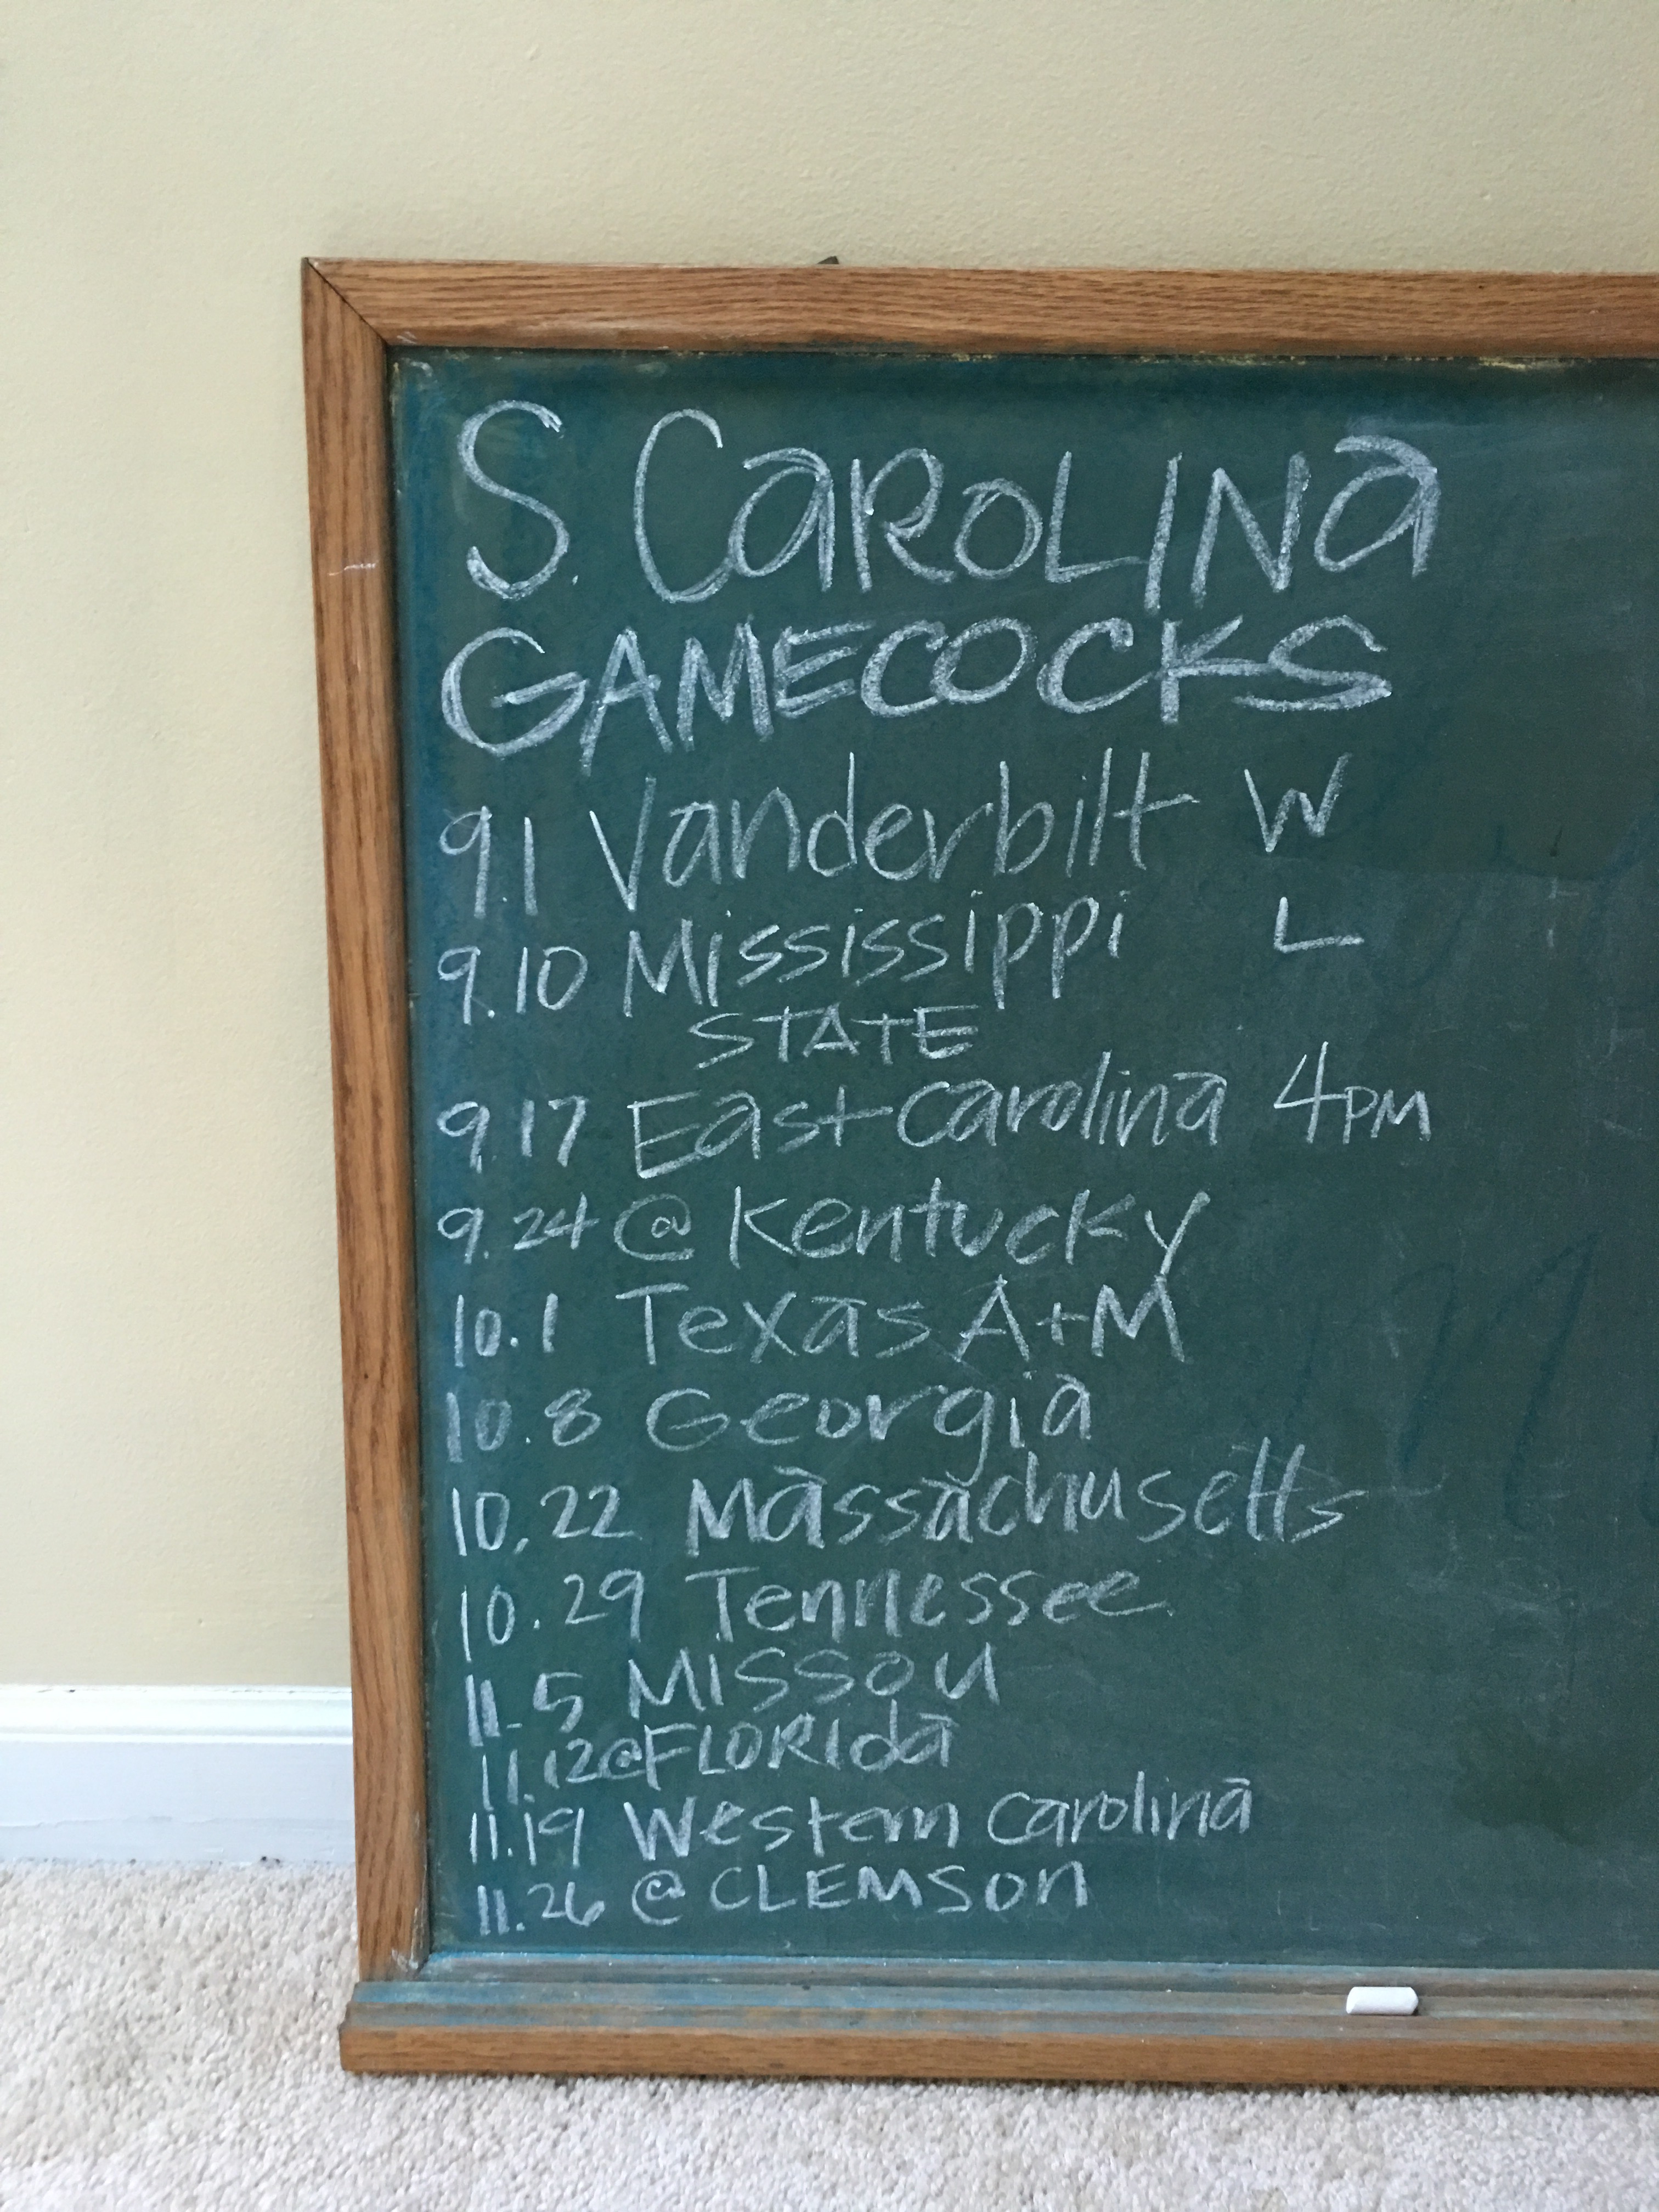 S. CaROLINa
GAMECOCKS
9.1 Vanderbilt W
9.10 Mississippi L
STATE
9.17 East Carolina 4PM
9.24 @ Kentucky
10.1 Texas A+M
10.8 Georgia
10.22 Massachusetts
10.29 Tennessee
11.5 Missou
11.12@FLORIda
11.19 Western Carolina
11.26 @ CLEMSon